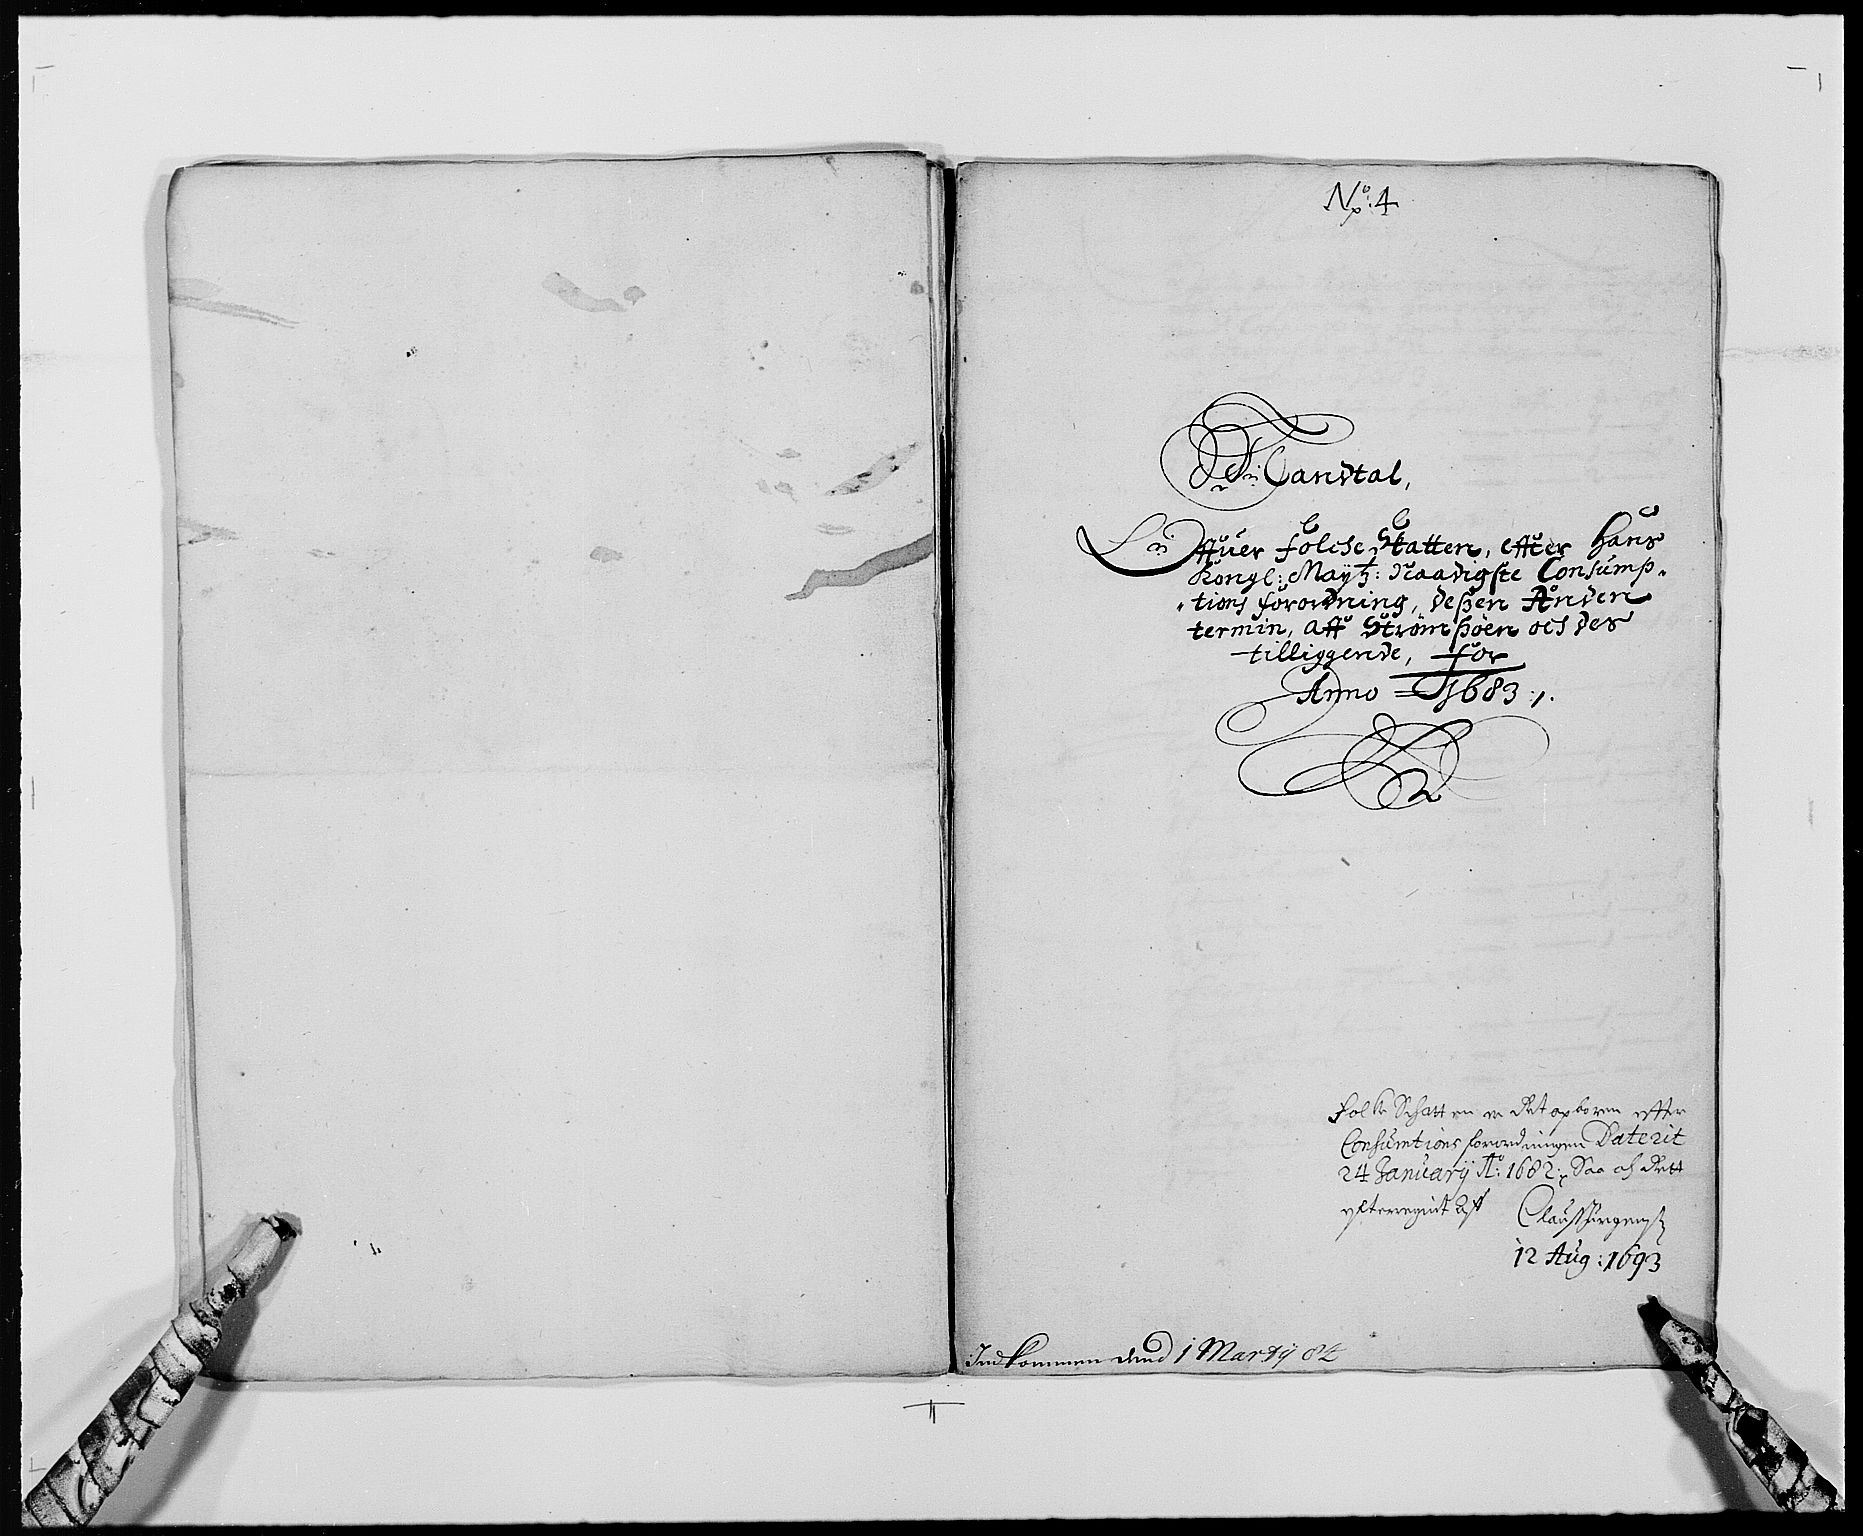 No: 4
Mandtal,
Offuer folche Skatten, effter Hans
Kongl: Maÿtz: Naadigste Consump-
-tions forordning, deßen Anden
termin, aff Strømsøen och des
tilliggende, for
Anno 1683
folke Schatten er Ret opboren effter
Consumtions forordningen Daterit
24 January Ao: 1682, Saa och Rett
efterregnit Aff Clauß Jørgenß
12 Aug: 1693
Indkommen dend 1 Martÿ 84